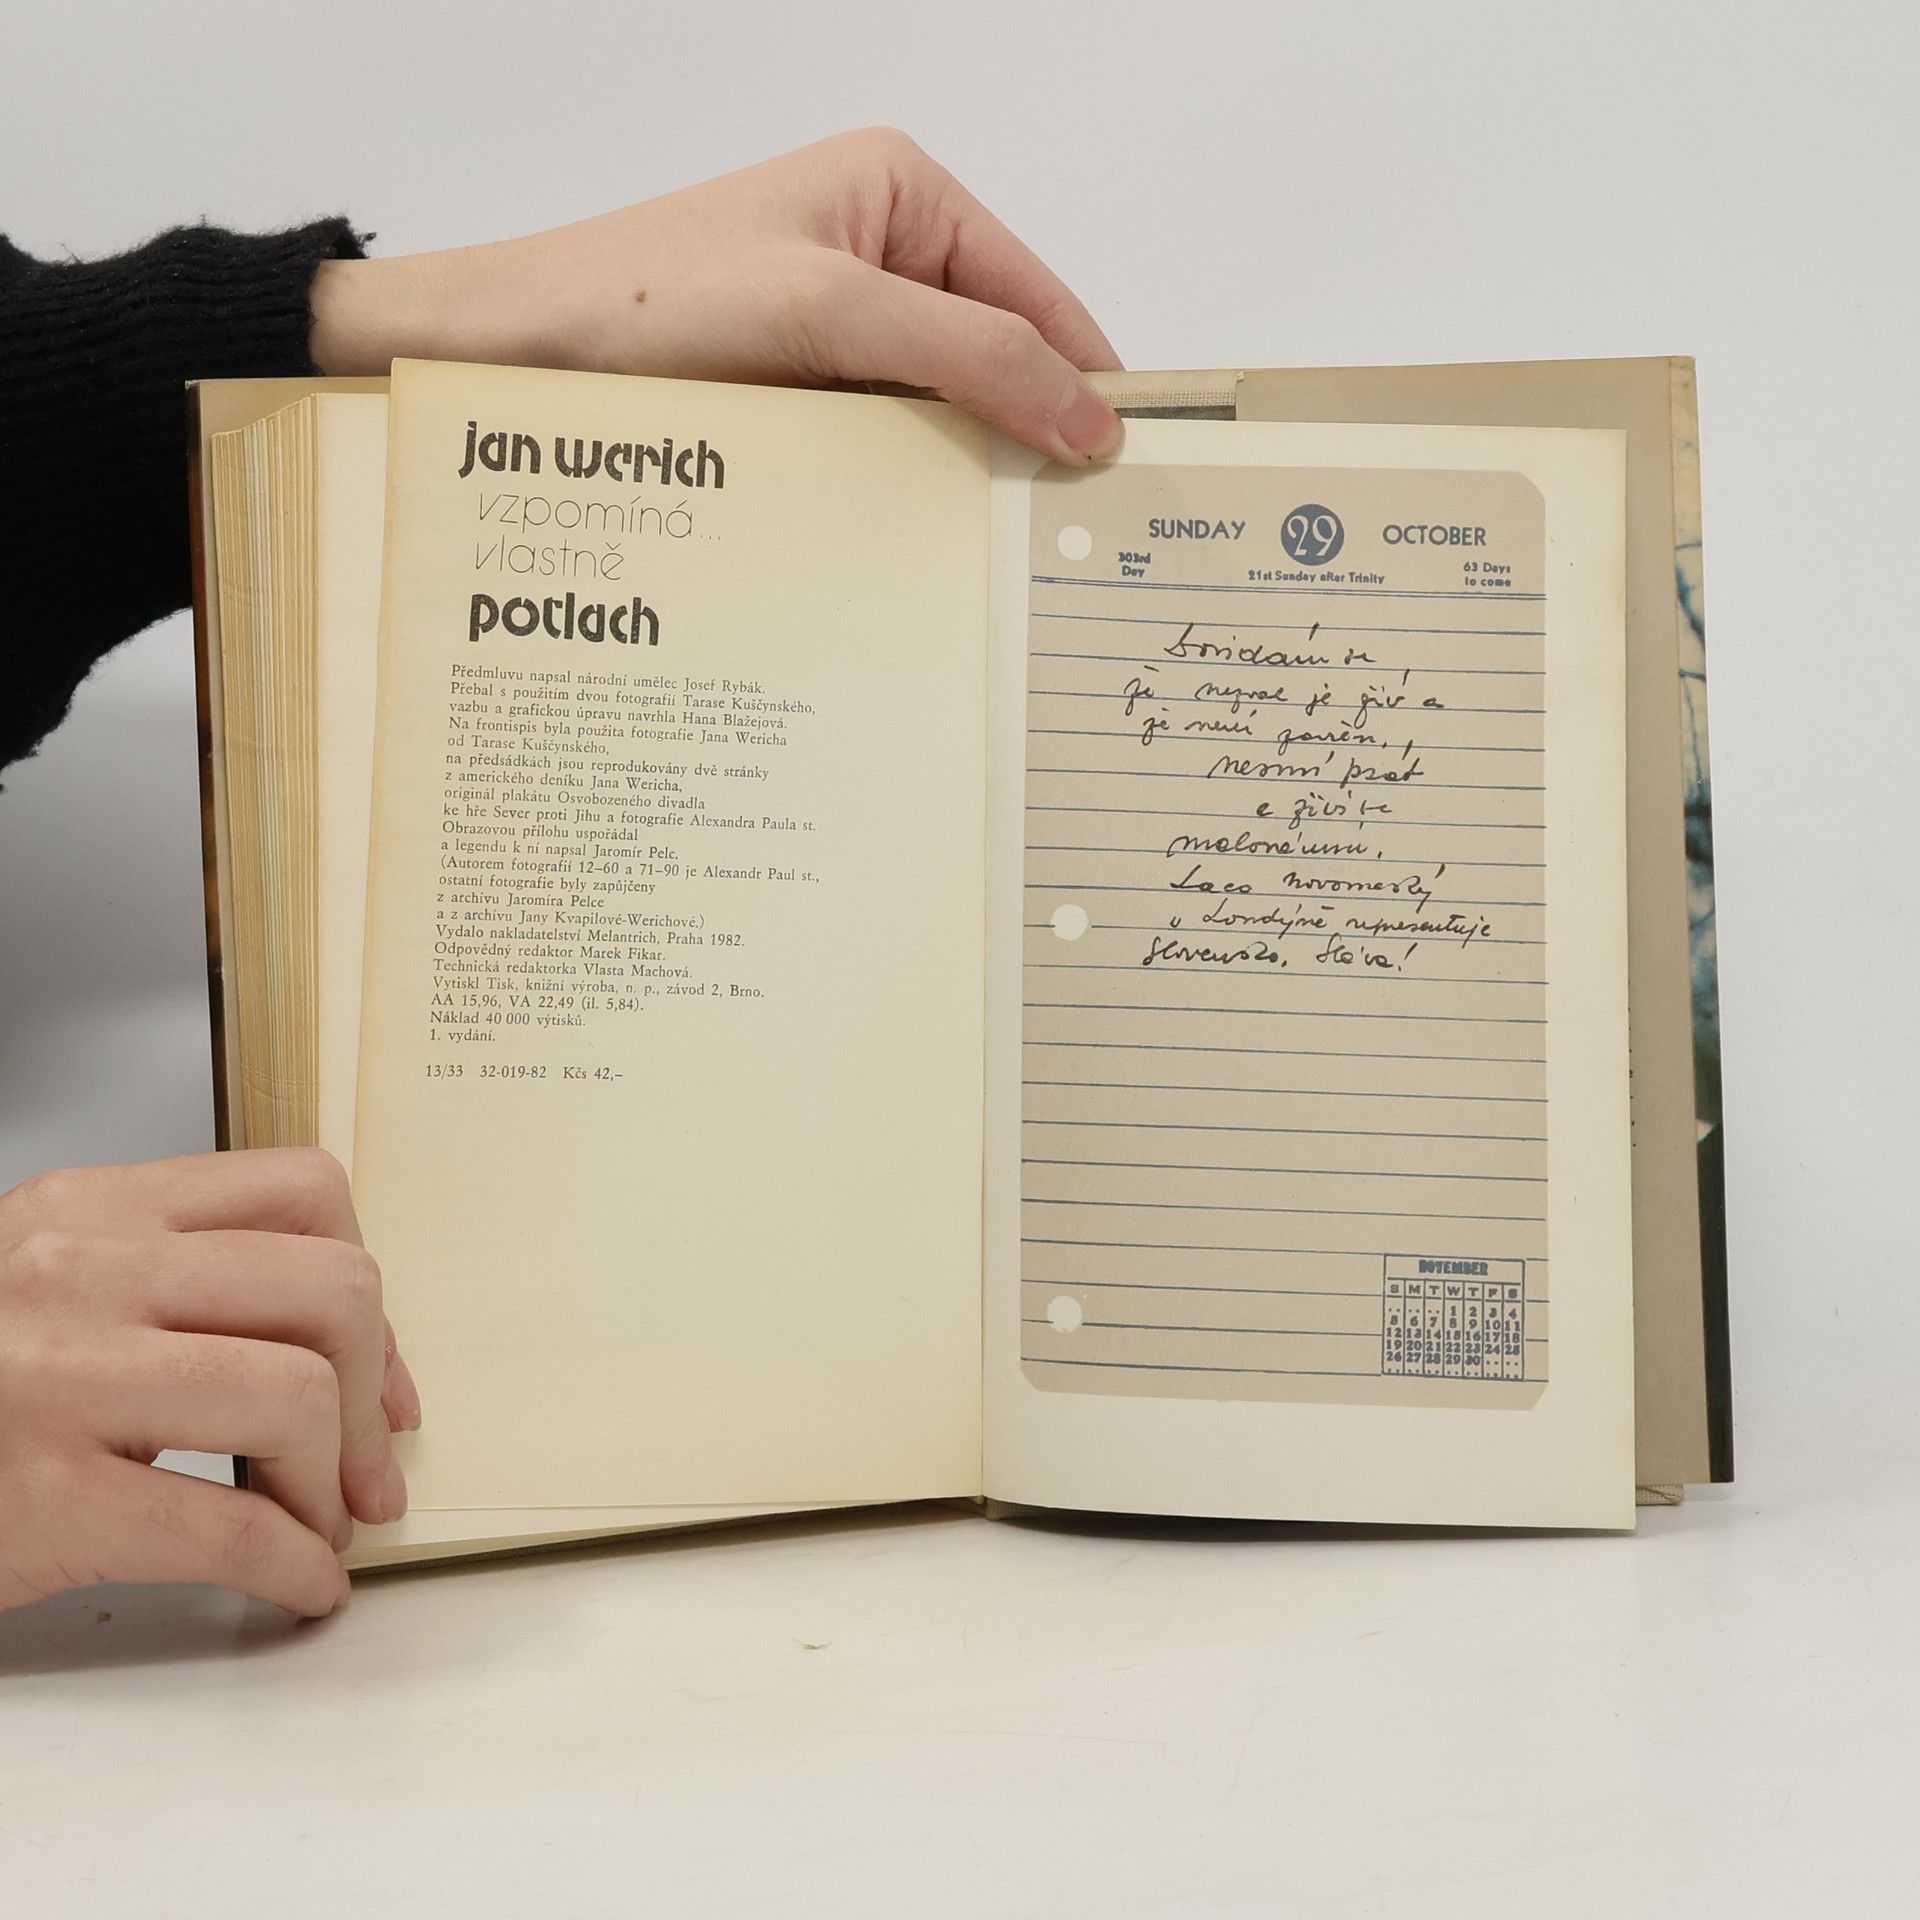 jan werich
vzpomíná...
vlastně
potlach
Předmluvu napsal národní umělec Josef Rybák.
Přebal s použitím dvou fotografií Tarase Kuščynského,
vazbu a grafickou úpravu navrhla Hana Blažejová.
Na frontispis byla použita fotografie Jana Wericha
od Tarase Kuščynského,
na předsádkách jsou reprodukovány dvě stránky
z amerického deníku Jana Wericha,
originál plakátu Osvobozeného divadla
ke hře Sever proti Jihu a fotografie Alexandra Paula st.
Obrazovou přílohu uspořádal
a legendu k ní napsal Jaromír Pelc.
(Autorem fotografií 12–60 a 71–90 je Alexandr Paul st.,
ostatní fotografie byly zapůjčeny
z archívu Jaromíra Pelce
a z archívu Jany Kvapilové-Werichové.)
Vydalo nakladatelství Melantrich, Praha 1982.
Odpovědný redaktor Marek Fikar.
Technická redaktorka Vlasta Machová.
Vytiskl Tisk, knižní výroba, n. p., závod 2, Brno.
AA 15,96, VA 22,49 (il. 5,84).
Náklad 40 000 výtisků.
1. vydání.
13/33 32-019-82 Kčs 42,–
SUNDAY 29 OCTOBER
303rd Day 21st Sunday after Trinity 63 Days to come
Dovidám se,
že nezval je živ a
že není zavřen,
nesmí psát
a živí se
malováním.
Laco Novomeský
v Londýně representuje
Slovensko. Sláva!
NOVEMBER
S M T W T F S
.. .. .. 1 2 3 4
5 6 7 8 9 10 11
12 13 14 15 16 17 18
19 20 21 22 23 24 25
26 27 28 29 30 .. ..